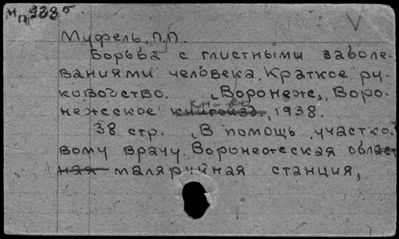 Муфель, П.П.
Борьба с глистными заболе-
ваниями человека. Краткое ру-
ководство. Воронеж, Воро-
нежское кн-во, 1938.
38 стр. (В помощь участко-
вому врачу. Воронежская област
ная малярийная станция,